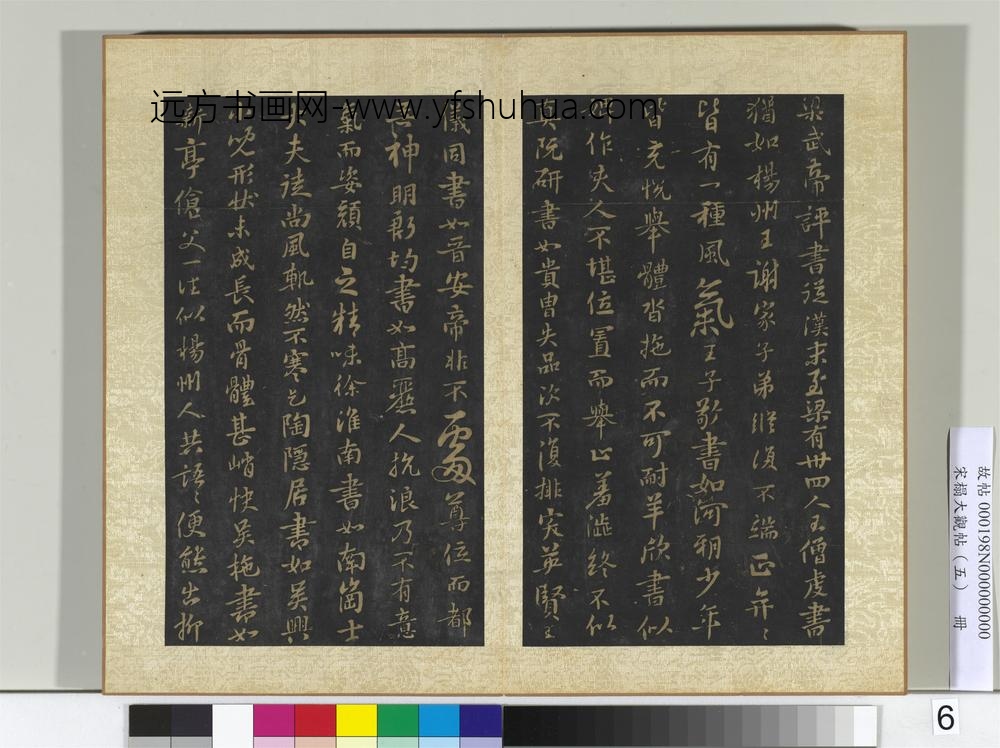 梁武帝評書從漢末至梁有卅四人王僧虔書
猶如楊州王謝家子弟縱復不端正奕〻
皆有一種風氣王子敬書如河朔少年
皆充悅舉體沓拖而不可耐羊欣書似
婢作夫人不堪位置而舉止羞澁終不似
真阮研書如貴冑失品次不復排突英賢王
儀同書如晉安帝非不處尊位而都
無神明郗均書如高麗人抗浪乃不有意
氣而姿顏自之精味徐淮南書如南崗士
大夫徒尚風軌然不寒乞陶隱居書如吳興
小兒形狀未成長而骨體甚峭快吳拖書如
新亭傖父一往似楊州人共語〻便態出柳
远方书画网-www.yfshuhua.com
故帖000198N000000000
宋搨大觀帖（五） 冊
6